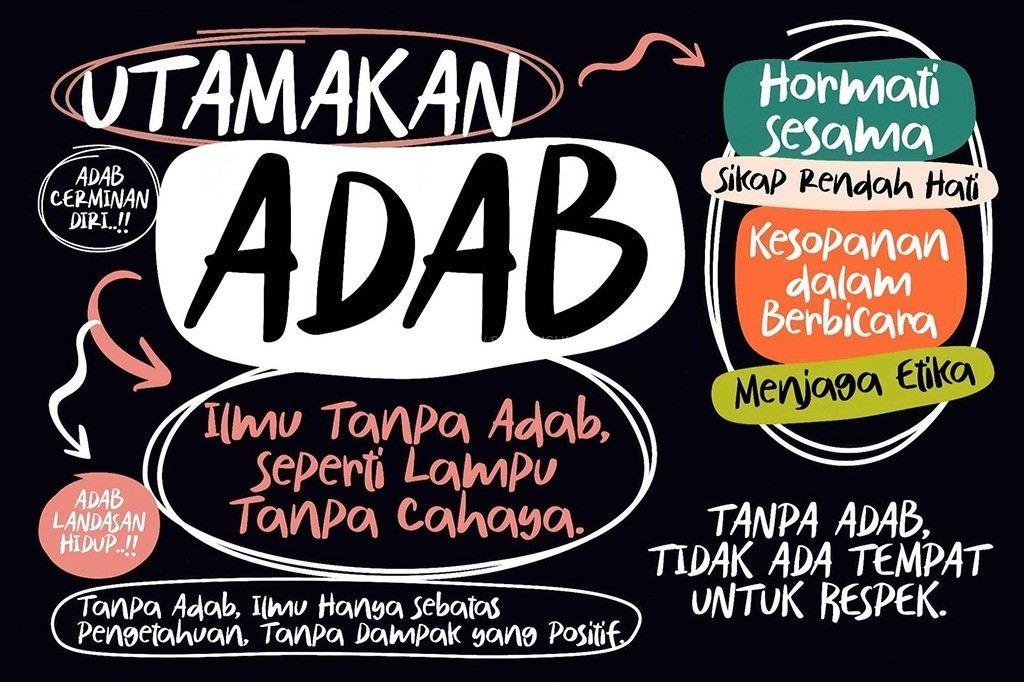 UTAMAKAN
ADAB
ADAB
CERMINAN
DIRI..!!
Hormati
Sesama
Sikap Rendah Hati
Kesopanan
dalam
Berbicara
Menjaga Etika
Ilmu Tanpa Adab,
Seperti Lampu
Tanpa Cahaya.
ADAB
LANDASAN
HIDUP..!!
Tanpa Adab, Ilmu Hanya Sebatas
Pengetahuan, Tanpa Dampak yang Positif.
TANPA ADAB,
TIDAK ADA TEMPAT
UNTUK RESPEK.